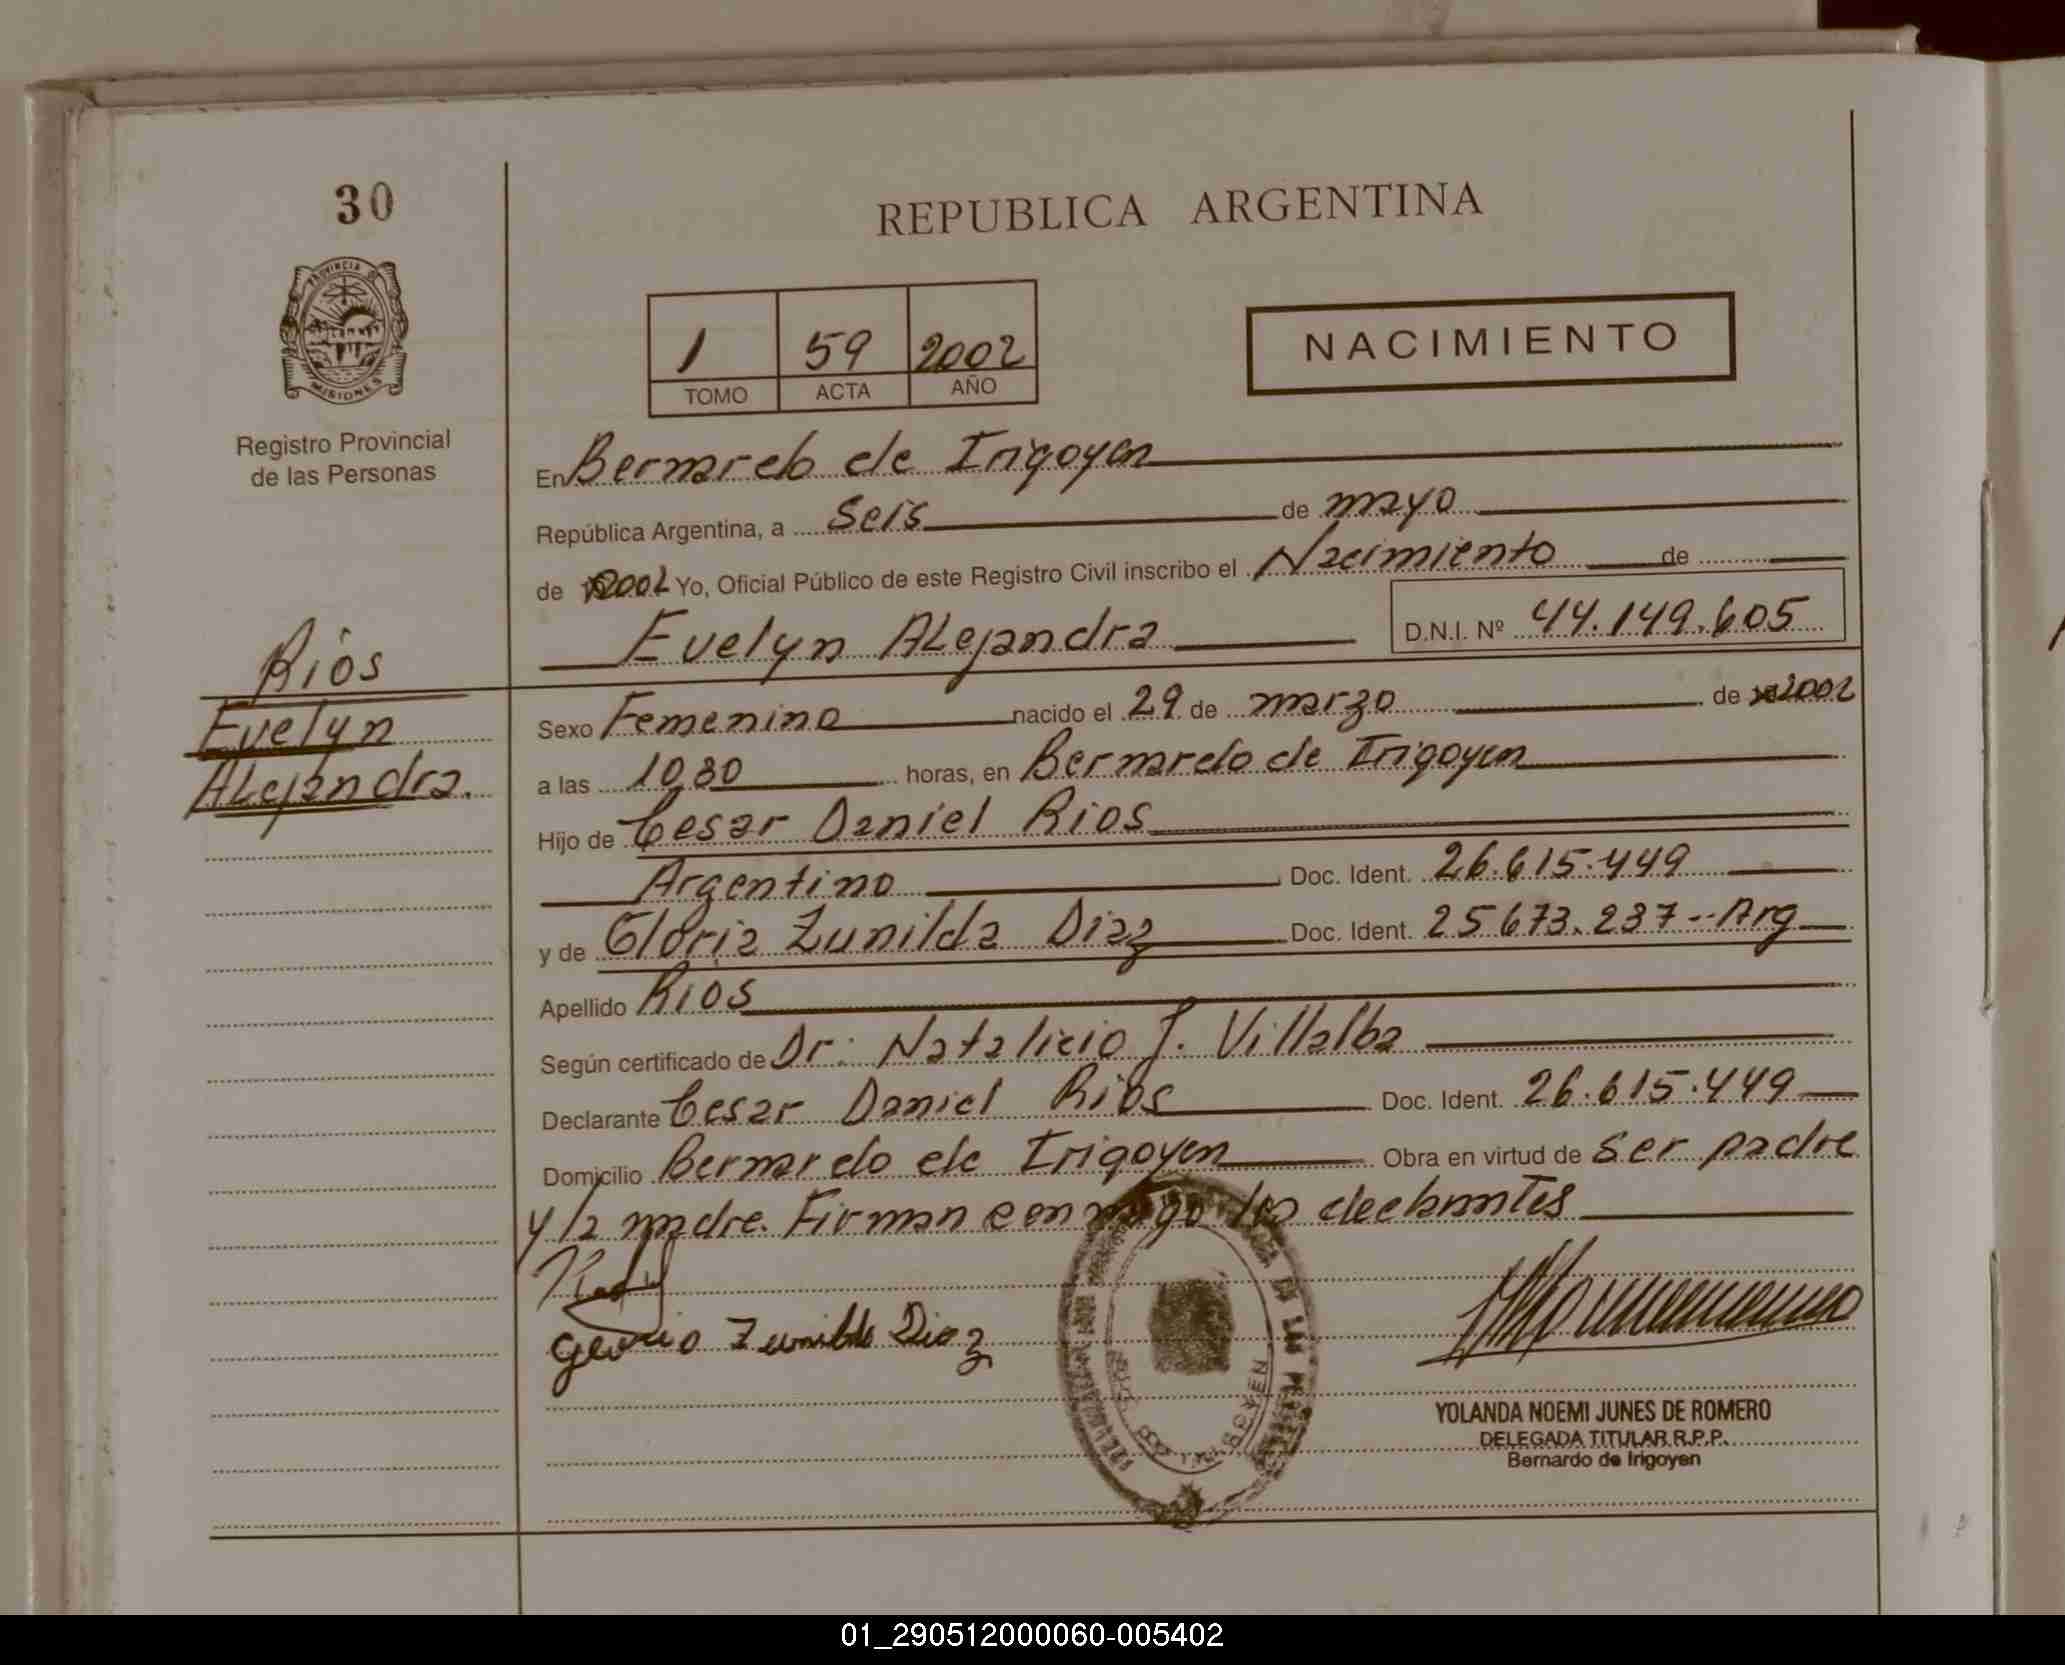 30
REPUBLICA ARGENTINA
PROVINCIA DE
MISIONES
Registro Provincial
de las Personas
1 59 2002
TOMO ACTA AÑO
NACIMIENTO
En Bernardo de Irigoyen
República Argentina, a seis de mayo
de 2002 Yo, Oficial Público de este Registro Civil inscribo el Nacimiento de
Evelyn ALejandra D.N.I. Nº 44.149.605
Rios
Evelyn
ALejandra.
Sexo Femenino nacido el 29 de marzo de 2002
a las 10,30 horas, en Bernardo de Irigoyen
Hijo de Cesar Daniel Rios
Argentino Doc. Ident. 26.615.449
y de Gloria Zunilda Diaz Doc. Ident. 25673.237--Arg
Apellido Rios
Según certificado de Dr: Natalicio J. Villalba
Declarante Cesar Daniel Rios Doc. Ident. 26.615.449
Domicilio Bernardo de Irigoyen Obra en virtud de ser padre
y la madre. Firman conmigo los declarantes
Zunilda Diaz
YOLANDA NOEMI JUNES DE ROMERO
DELEGADA TITULAR R.P.P.
Bernardo de Irigoyen
01_290512000060-005402